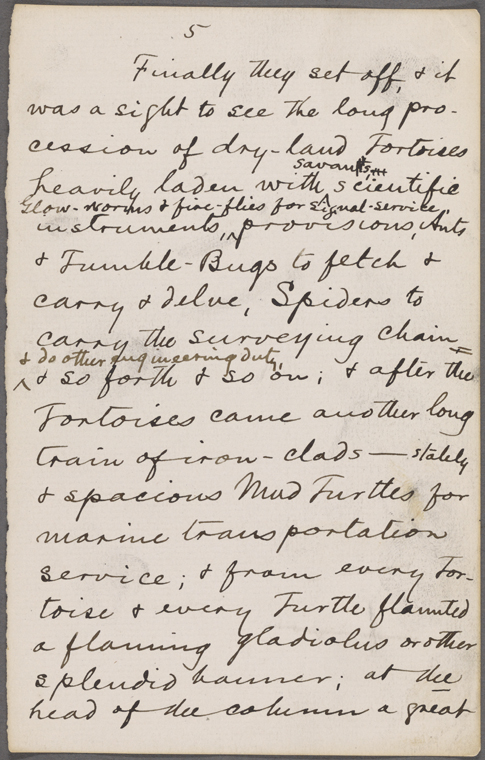 5
Finally they set off, & it
was a sight to see the long pro-
cession of dry-land Tortoises
savants,
heavily laden with scientific
Glow-worms & fire-flies for signal-service,
instruments, provisions, Ants
& Tumble-Bugs to fetch &
carry & delve, Spiders to
carry the surveying chain
& do other engineering duty,
& so forth & so on; & after the
Tortoises came another long
train of iron-clads — stately
& spacious Mud Turtles for
marine transportation
service; & from every Tor-
toise & every Turtle flaunted
a flaming gladiolus or other
splendid banner; at the
head of the column a great